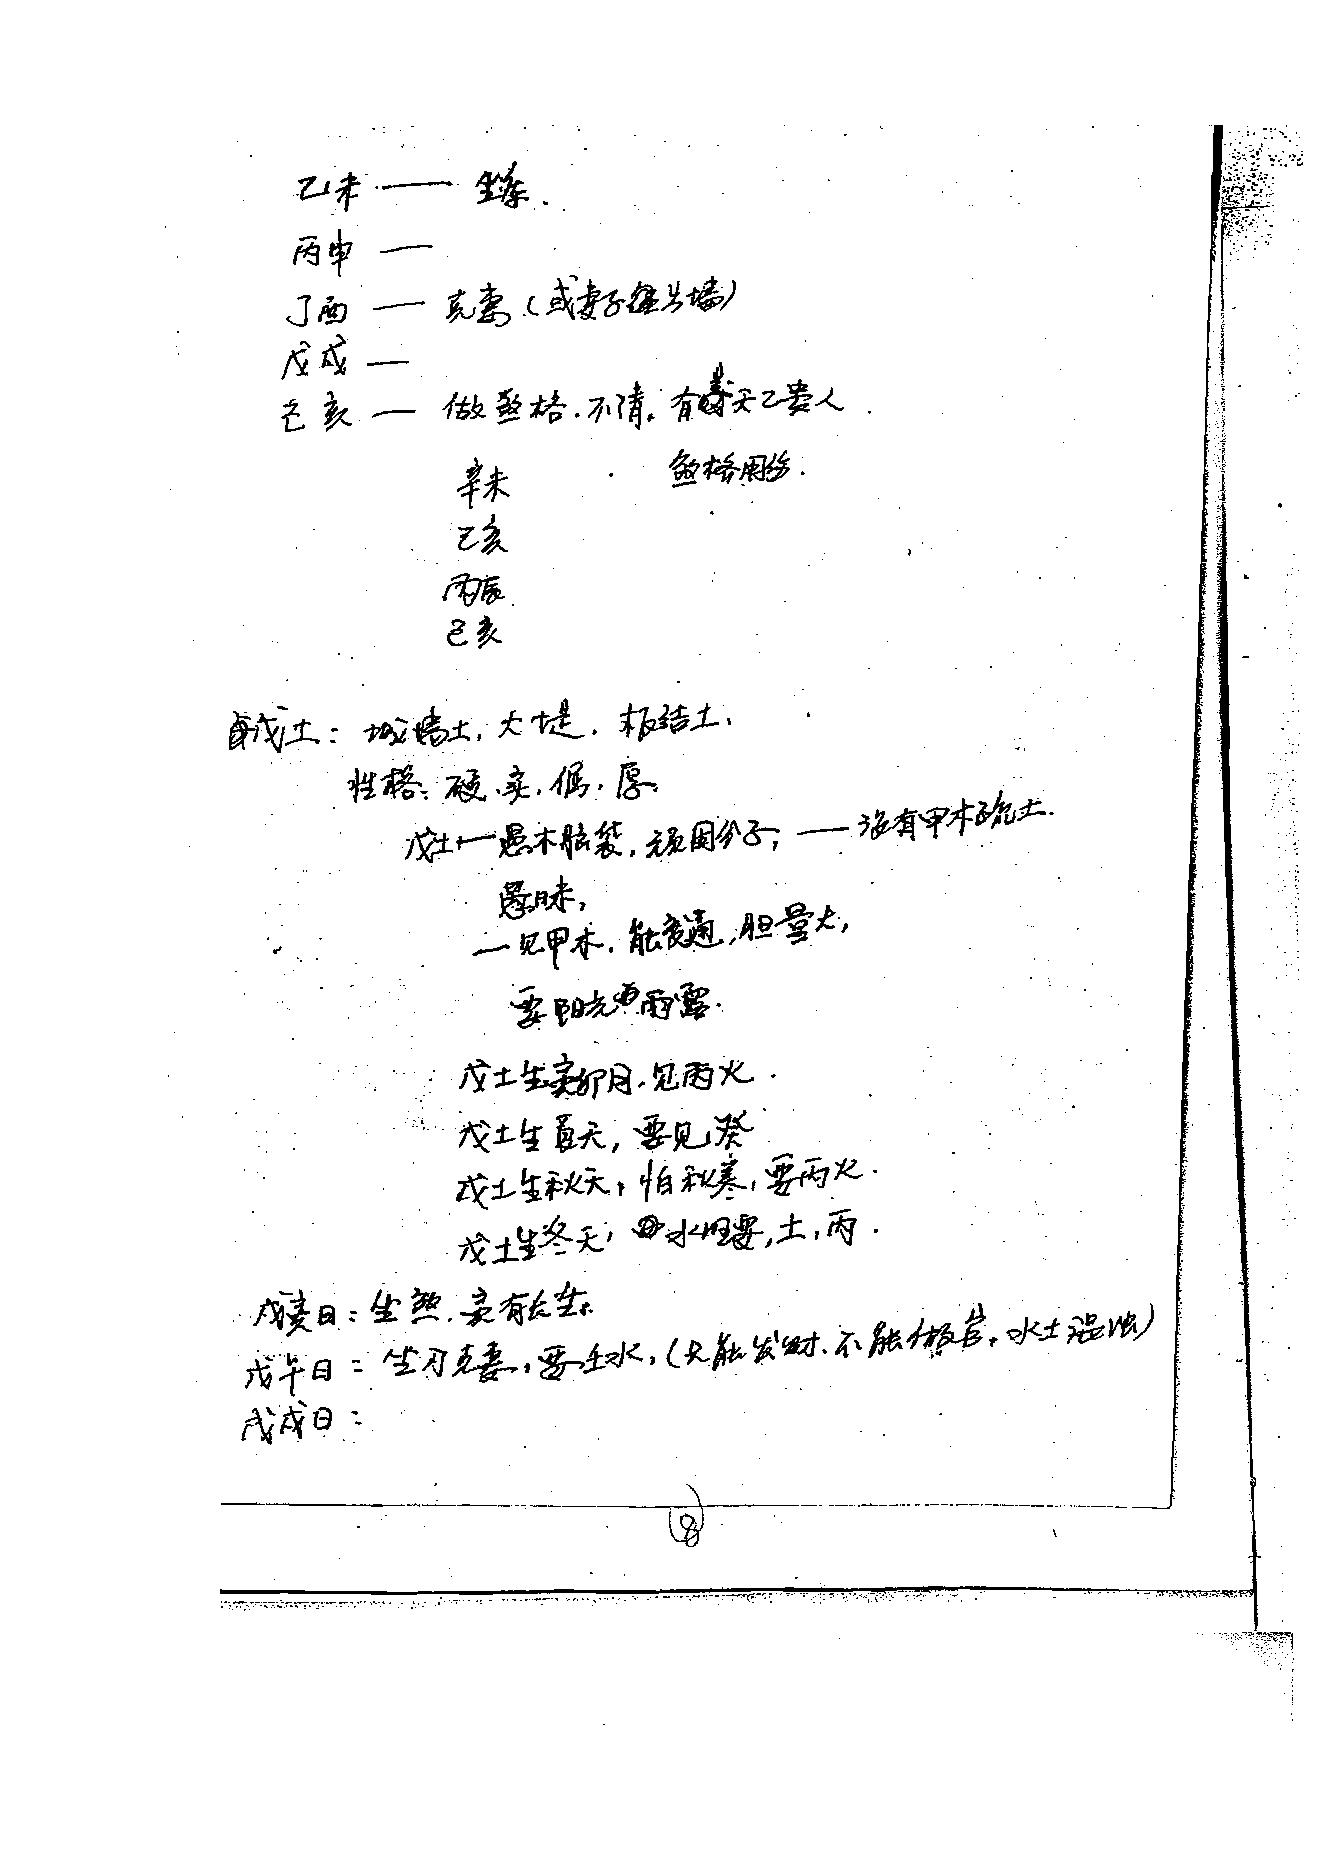 乙未 —— 坐库.
丙申 —
丁酉 — 克妻(或妻子墙)
戊戌 —
己亥 — 做煞格.不清.有天乙贵人.
煞格用
辛未
乙亥
丙辰
己亥
戊土:城墙土,大堤.板结土.
性格:硬.实.厚.
戊土—愚木脑袋,顽固分子; —— 没有甲木疏土.
愚昧,
—见甲木.能变通,胆量大,
要阳光雨露.
戊土生寅卯月.见丙火.
戊土生夏天,要见癸
戊土生秋天,怕秋寒,要丙火.
戊土生冬天,水旺要,土,丙.
戊寅日:坐煞.寅有长生.
戊午日:坐刃克妻,要壬水,(只能发财.不能做官,水土混浊)
戊戌日:
8